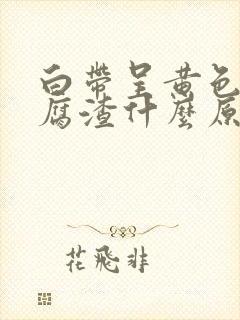 白帶呈黄色
腐渣什麼原
花飛非